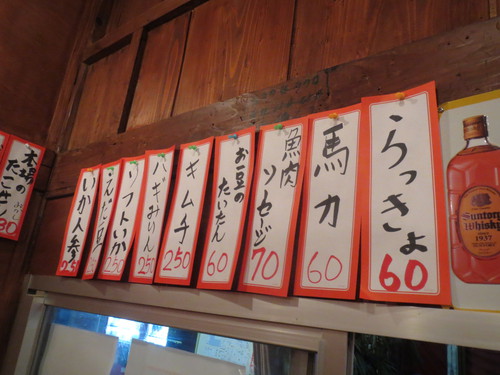 らっきょ
60
馬力
60
魚肉ソセジ
70
お豆の
たいたん
60
キムチ
250
ハギみりん
250
ソフトいか
250
いか人参
本場の
たこせん
80
Suntory
Whisky
1937